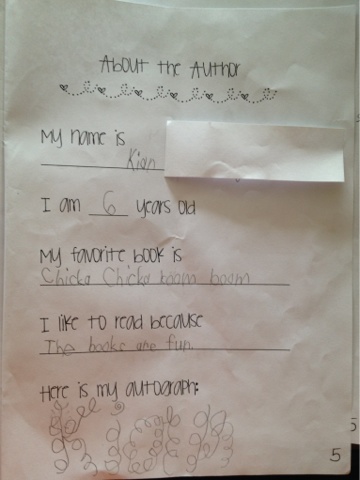 About the Author
My name is
Kian
I am 6 years old
My favorite book is
Chicka Chicka boom boom
I like to read because
The books are fun.
Here is my autograph:
5
5